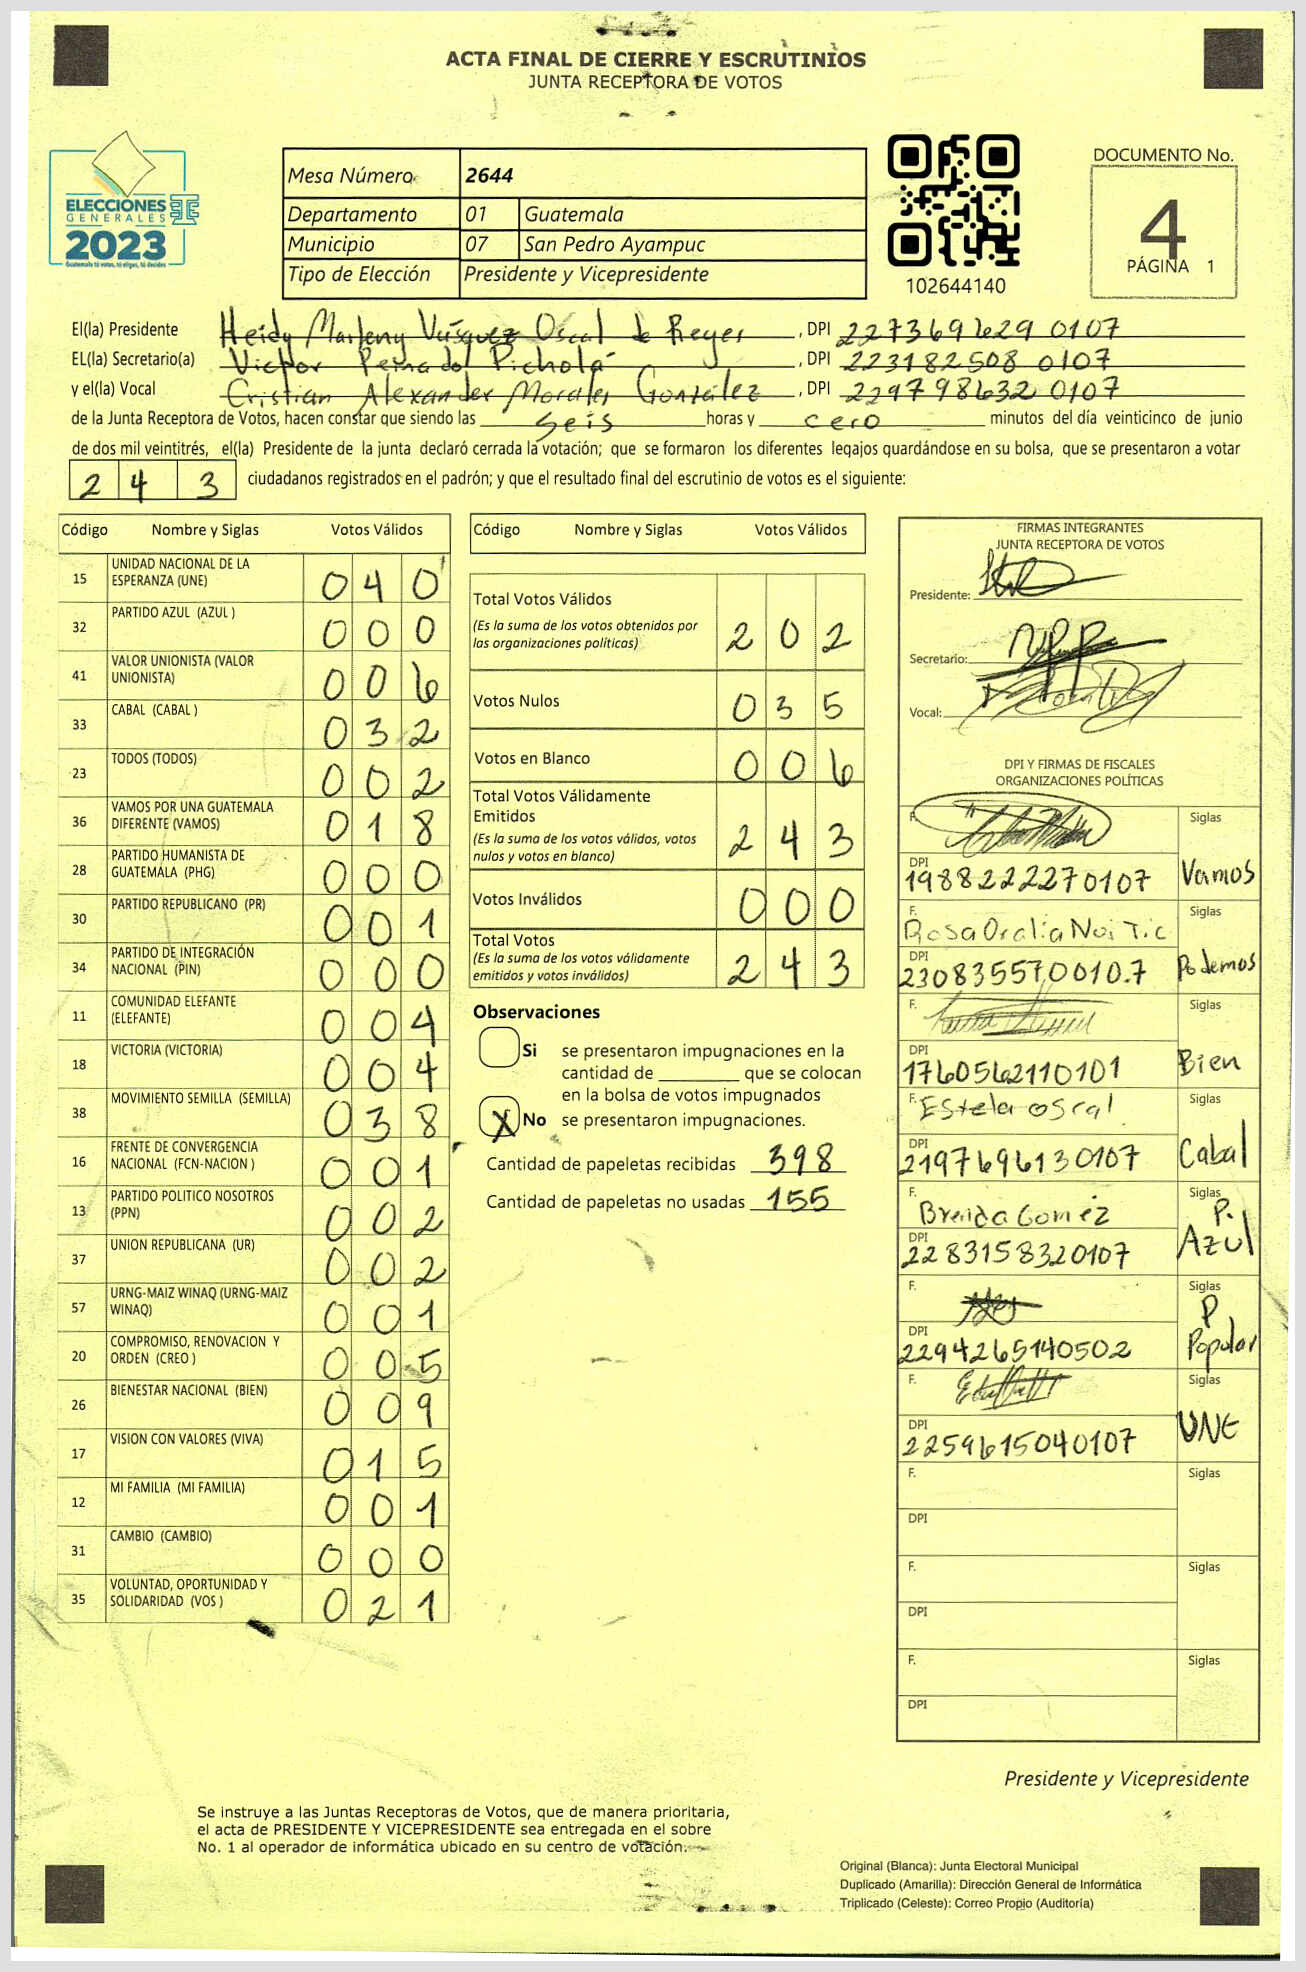 ACTA FINAL DE CIERRE Y ESCRUTINIOS
JUNTA RECEPTORA DE VOTOS
ELECCIONES
GENERALES
2023
Guatemala tú votas, tú eliges, tú decides
Mesa Número 2644
Departamento 01 Guatemala
Municipio 07 San Pedro Ayampuc
Tipo de Elección Presidente y Vicepresidente
102644140
DOCUMENTO No.
4
PÁGINA 1
El(la) Presidente Heidy Marleny Vásquez Oscal de Reyes, DPI 227369629 0107
EL(la) Secretario(a) Victor Peinado Picholá, DPI 223182508 0107
y el(la) Vocal Cristian Alexander Morales González, DPI 229798632 0107
de la Junta Receptora de Votos, hacen constar que siendo las seis horas y cero minutos del día veinticinco de junio
de dos mil veintitrés, el(la) Presidente de la junta declaró cerrada la votación; que se formaron los diferentes legajos guardándose en su bolsa, que se presentaron a votar
2 4 3 ciudadanos registrados en el padrón; y que el resultado final del escrutinio de votos es el siguiente:
Código Nombre y Siglas Votos Válidos
15 UNIDAD NACIONAL DE LA ESPERANZA (UNE) 0 4 0
32 PARTIDO AZUL (AZUL ) 0 0 0
41 VALOR UNIONISTA (VALOR UNIONISTA) 0 0 6
33 CABAL (CABAL ) 0 3 2
23 TODOS (TODOS) 0 0 2
36 VAMOS POR UNA GUATEMALA DIFERENTE (VAMOS) 0 1 8
28 PARTIDO HUMANISTA DE GUATEMALA (PHG) 0 0 0
30 PARTIDO REPUBLICANO (PR) 0 0 1
34 PARTIDO DE INTEGRACIÓN NACIONAL (PIN) 0 0 0
11 COMUNIDAD ELEFANTE (ELEFANTE) 0 0 4
18 VICTORIA (VICTORIA) 0 0 4
38 MOVIMIENTO SEMILLA (SEMILLA) 0 3 8
16 FRENTE DE CONVERGENCIA NACIONAL (FCN-NACION ) 0 0 1
13 PARTIDO POLITICO NOSOTROS (PPN) 0 0 2
37 UNION REPUBLICANA (UR) 0 0 2
57 URNG-MAIZ WINAQ (URNG-MAIZ WINAQ) 0 0 1
20 COMPROMISO, RENOVACION Y ORDEN (CREO ) 0 0 5
26 BIENESTAR NACIONAL (BIEN) 0 0 9
17 VISION CON VALORES (VIVA) 0 1 5
12 MI FAMILIA (MI FAMILIA) 0 0 1
31 CAMBIO (CAMBIO) 0 0 0
35 VOLUNTAD, OPORTUNIDAD Y SOLIDARIDAD (VOS ) 0 2 1
Código Nombre y Siglas Votos Válidos
Total Votos Válidos
(Es la suma de los votos obtenidos por las organizaciones políticas) 2 0 2
Votos Nulos 0 3 5
Votos en Blanco 0 0 6
Total Votos Válidamente Emitidos
(Es la suma de los votos válidos, votos nulos y votos en blanco) 2 4 3
Votos Inválidos 0 0 0
Total Votos
(Es la suma de los votos válidamente emitidos y votos inválidos) 2 4 3
Observaciones
Si se presentaron impugnaciones en la
cantidad de ________ que se colocan
en la bolsa de votos impugnados
X No se presentaron impugnaciones.
Cantidad de papeletas recibidas 398
Cantidad de papeletas no usadas 155
FIRMAS INTEGRANTES
JUNTA RECEPTORA DE VOTOS
Presidente:
Secretario:
Vocal:
DPI Y FIRMAS DE FISCALES
ORGANIZACIONES POLÍTICAS
F. Siglas
DPI 1988222270107 Vamos
F. Rosa Oralia Noj Tic Siglas
DPI 2308355700107 Podemos
F. Siglas
DPI 1760562110101 Bien
F. Estela oscal Siglas
DPI 2197696130107 Cabal
F. Brenda Gomez Siglas
DPI 2283158320107 P. Azul
F. Siglas
DPI 2294265140502 P Popular
F. Siglas
DPI 2259615040107 UNE
F. Siglas
DPI
F. Siglas
DPI
F. Siglas
DPI
Presidente y Vicepresidente
Se instruye a las Juntas Receptoras de Votos, que de manera prioritaria,
el acta de PRESIDENTE Y VICEPRESIDENTE sea entregada en el sobre
No. 1 al operador de informática ubicado en su centro de votación.
Original (Blanca): Junta Electoral Municipal
Duplicado (Amarilla): Dirección General de Informática
Triplicado (Celeste): Correo Propio (Auditoría)